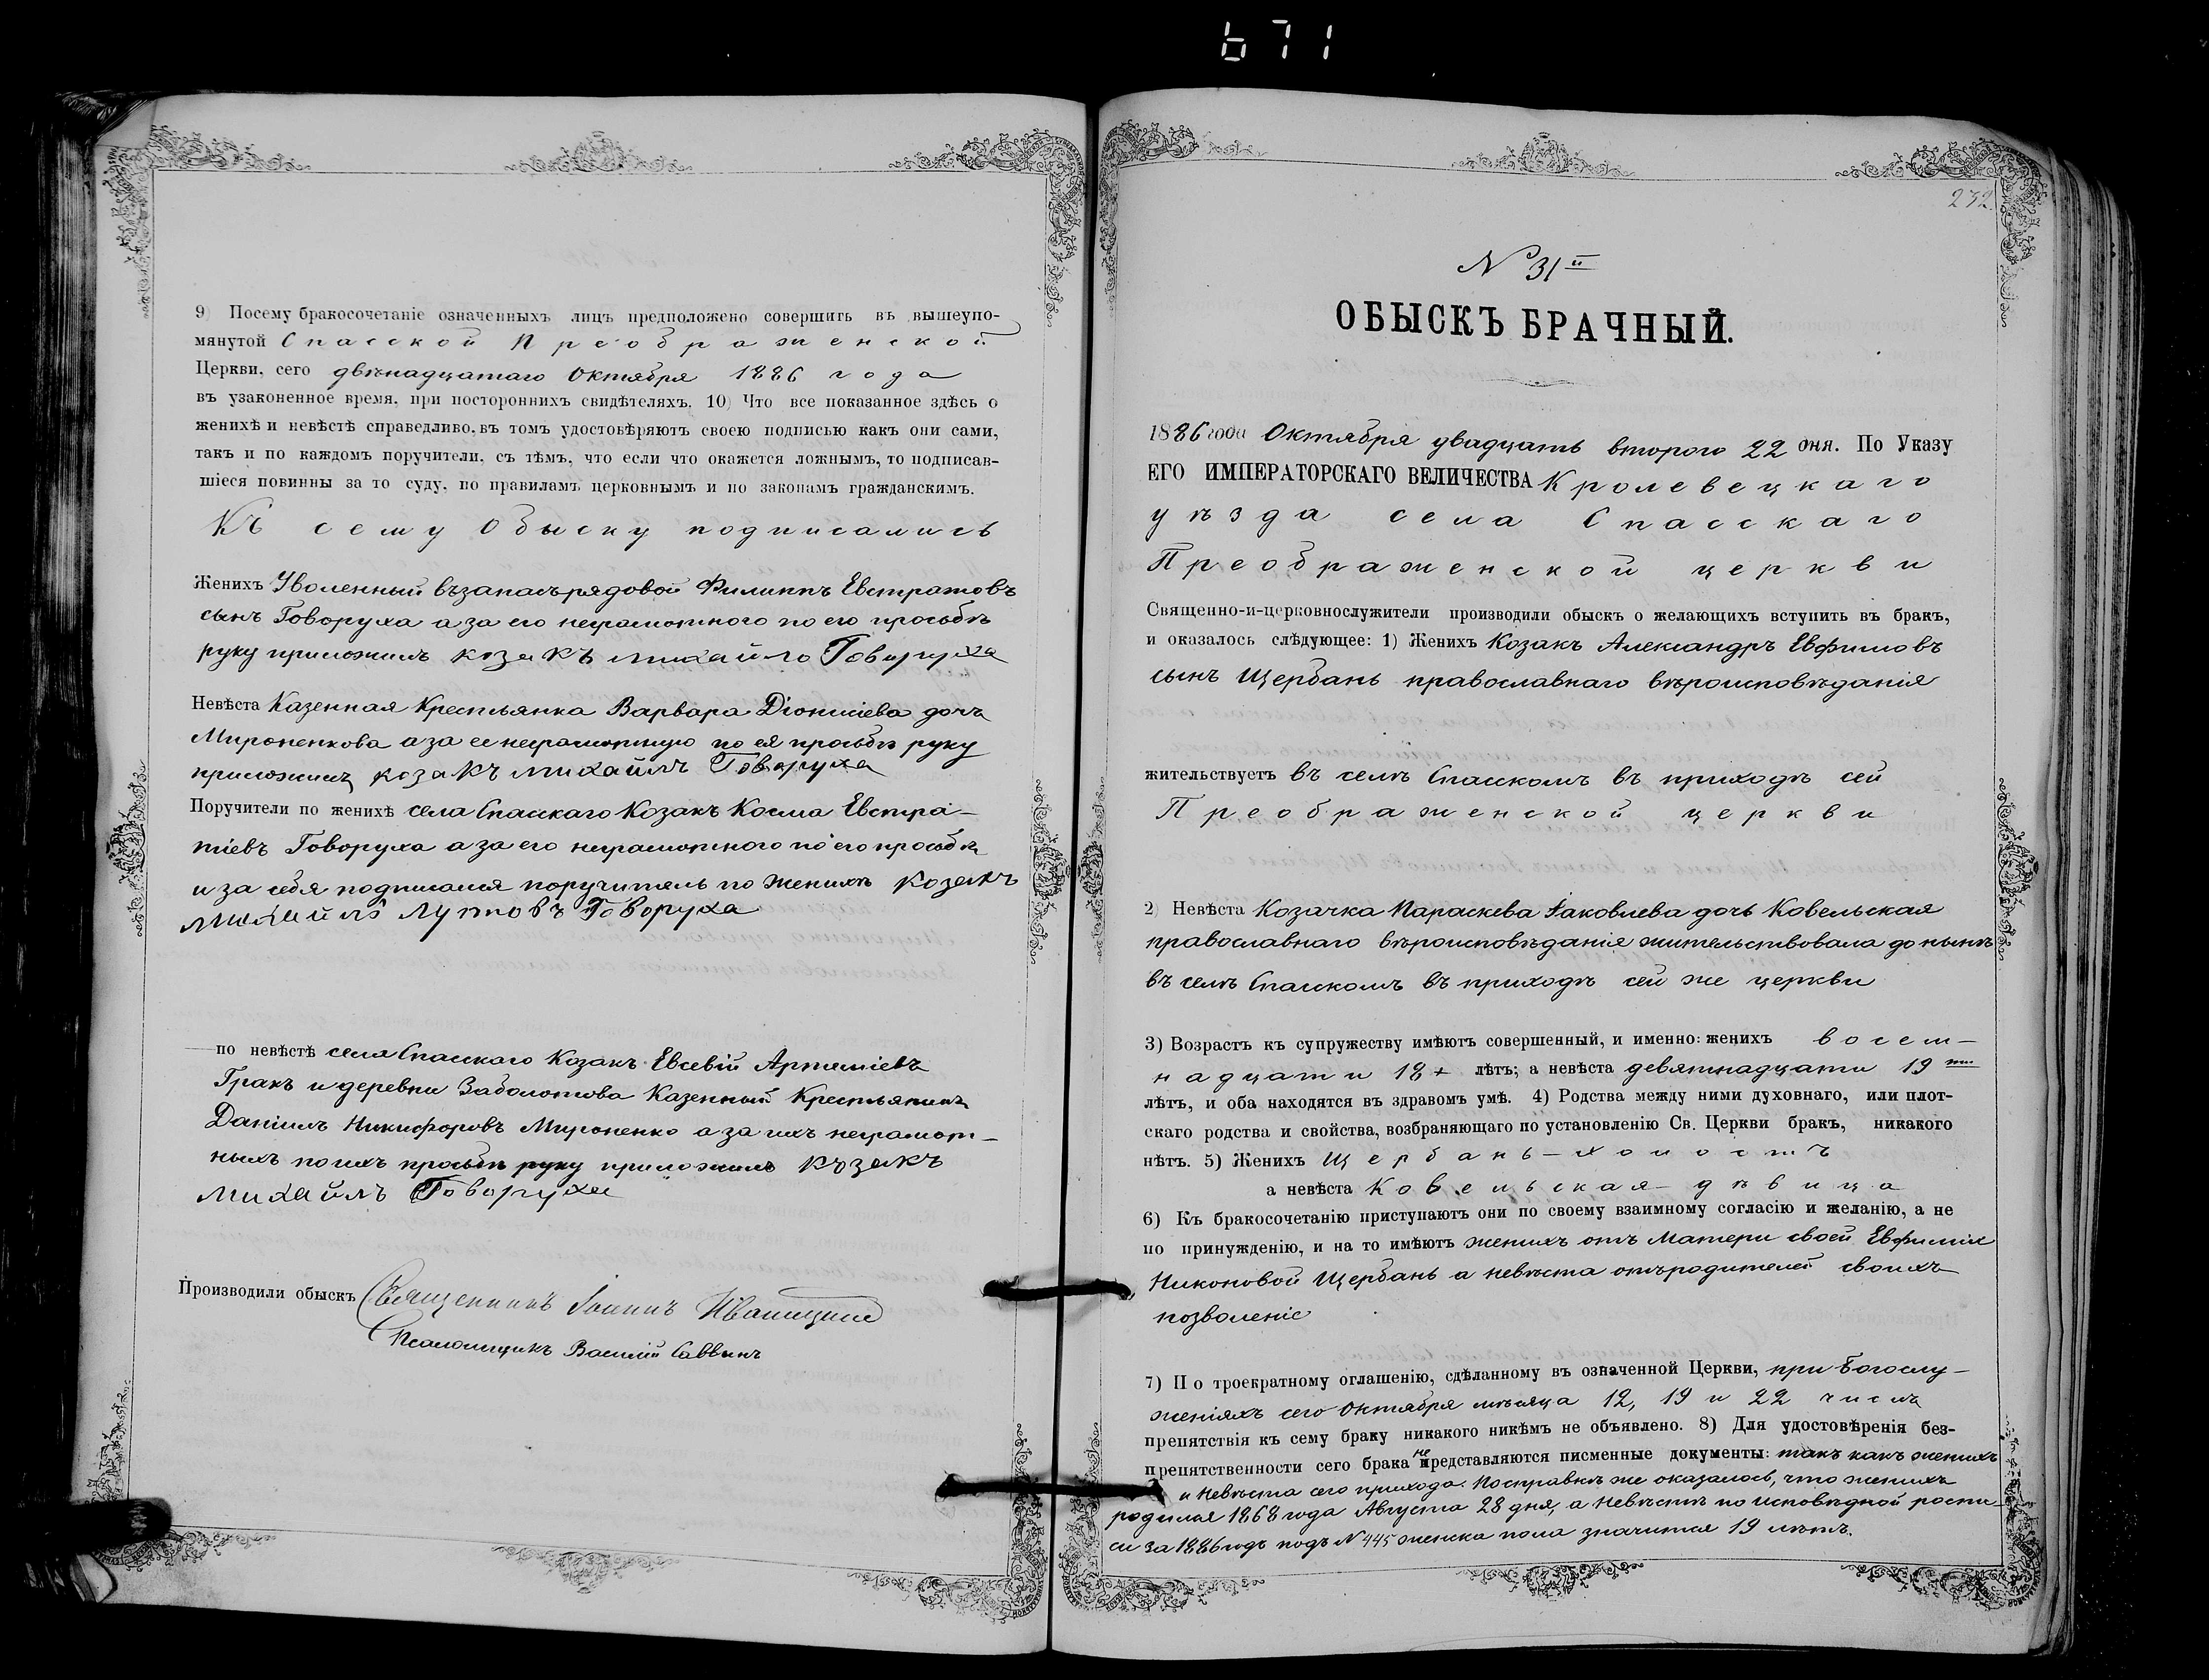 671
9) Посему бракосочетаніе означенныхъ лицъ предположено совершить въ вышеупо-
мянутой Спасской Преображенской
Церкви, сего двѣнадцатаго Октября 1886 года
въ узаконенное время, при постороннихъ свидѣтеляхъ. 10) Что все показанное здѣсь о
женихѣ и невѣстѣ справедливо, въ томъ удостовѣряютъ своею подписью какъ они сами,
такъ и по каждомъ поручители, съ тѣмъ, что если что окажется ложнымъ, то подписав-
шіеся повинны за то суду, по правиламъ церковнымъ и по законамъ гражданскимъ.
Къ сему Обыску подписались
Женихъ Уволенный въ запасъ рядовой Филиппъ Евстратовъ
сынъ Говоруха а за его неграмотного по его просьбѣ
руку приложилъ козакъ михайло Говоруха
Невѣста Казенная Крестьянка Варвара Діонисіева дочь
Мироненкова а за ее неграмотную по ея просьбѣ руку
приложилъ козакъ михаилъ Говоруха
Поручители по женихѣ села Спасскаго Козакъ Косма Евстра-
тіевъ Говоруха а за его неграмотного по его просьбѣ
и за себя подписался поручитель по женихѣ козакъ
михаилъ Говоруха
по невѣстѣ села Спасскаго Козакъ Евсевій Артеміевъ
Гракъ и деревни Заболотова Казенный Крестьянинъ
Даніилъ Никифоровъ Мироненко а за ихъ неграмот-
ныхъ по ихъ просьбѣ руку приложилъ козакъ
михаилъ Говоруха
Производили обыскъ Священникъ Іоаннъ
Псаломщикъ Василій Саввинъ
232
N 31й
ОБЫСКЪ БРАЧНЫЙ.
1886 года Октября двадцать второго 22 дня. По Указу
ЕГО ИМПЕРАТОРСКАГО ВЕЛИЧЕСТВА Кролевецкаго
уѣзда села Спасскаго
Преображенской церкви
Священно-и-церковнослужители производили обыскъ о желающихъ вступить въ бракъ,
и оказалось слѣдующее: 1) Женихъ Козакъ Александръ Евфимовъ
сынъ Щербань православнаго вѣроисповѣданія
жительствуетъ въ селѣ Спасскомъ въ приходѣ сей
Преображенской церкви
2) Невѣста Козачка Параскева Іаковлева дочь Ковельская
православнаго вѣроисповѣданія жительствовала до нынѣ
въ селѣ Спасскомъ въ приходѣ сей же церкви
3) Возрастъ къ супружеству имѣютъ совершенный, и именно: женихъ восем-
надцати 18 лѣтъ; а невѣста девятнадцати 19ти
лѣтъ, и оба находятся въ здравомъ умѣ. 4) Родства между ними духовнаго, или плот-
скаго родства и свойства, возбраняющаго по установленію Св. Церкви бракъ, никакого
нѣтъ. 5) Женихъ Щербань-холостъ
а невѣста Ковельская-дѣвица
6) Къ бракосочетанію приступаютъ они по своему взаимному согласію и желанію, а не
по принужденію, и на то имѣютъ женихъ отъ Матери своей Евфиміи
Никоновой Щербань а невѣста отъ родителей своихъ
позволеніе
7) По троекратному оглашенію, сдѣланному въ означенной Церкви, при богослу-
женіяхъ сего Октября мѣсяца 12, 19 и 22 числъ
препятствія къ сему браку никакого никѣмъ не объявлено. 8) Для удостовѣренія без-
препятственности сего брака не представляются писменные документы: такъ какъ женихъ
и Невѣста сего прихода. По справкѣ же оказалось, что женихъ
родился 1868 года Августа 28 дня, а Невѣстѣ по исповѣдной роспи-
си за 1886 годъ подъ N 445 женска пола значится 19 лѣтъ.